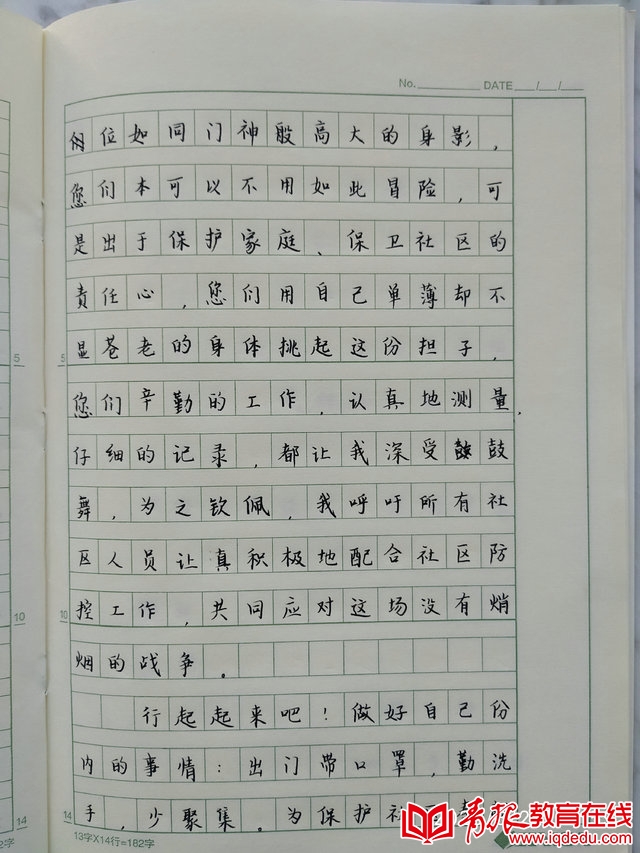 No. DATE / /
位如同门神般高大的身影，
您们本可以不用如此冒险，可
是出于保护家庭、保卫社区的
责任心，您们用自己单薄却不
显苍老的身体挑起这份担子，
您们辛勤的工作，认真地测量，
仔细的记录，都让我深受鼓
舞，为之钦佩，我呼吁所有社
区人员让真积极地配合社区防
控工作，共同应对这场没有硝
烟的战争。
行起起来吧！做好自己份
内的事情：出门带口罩，勤洗
手，少聚集。为保护社
5
5
10
10
14
14
13字X14行=182字
2字
青报教育在线
www.iqdedu.com